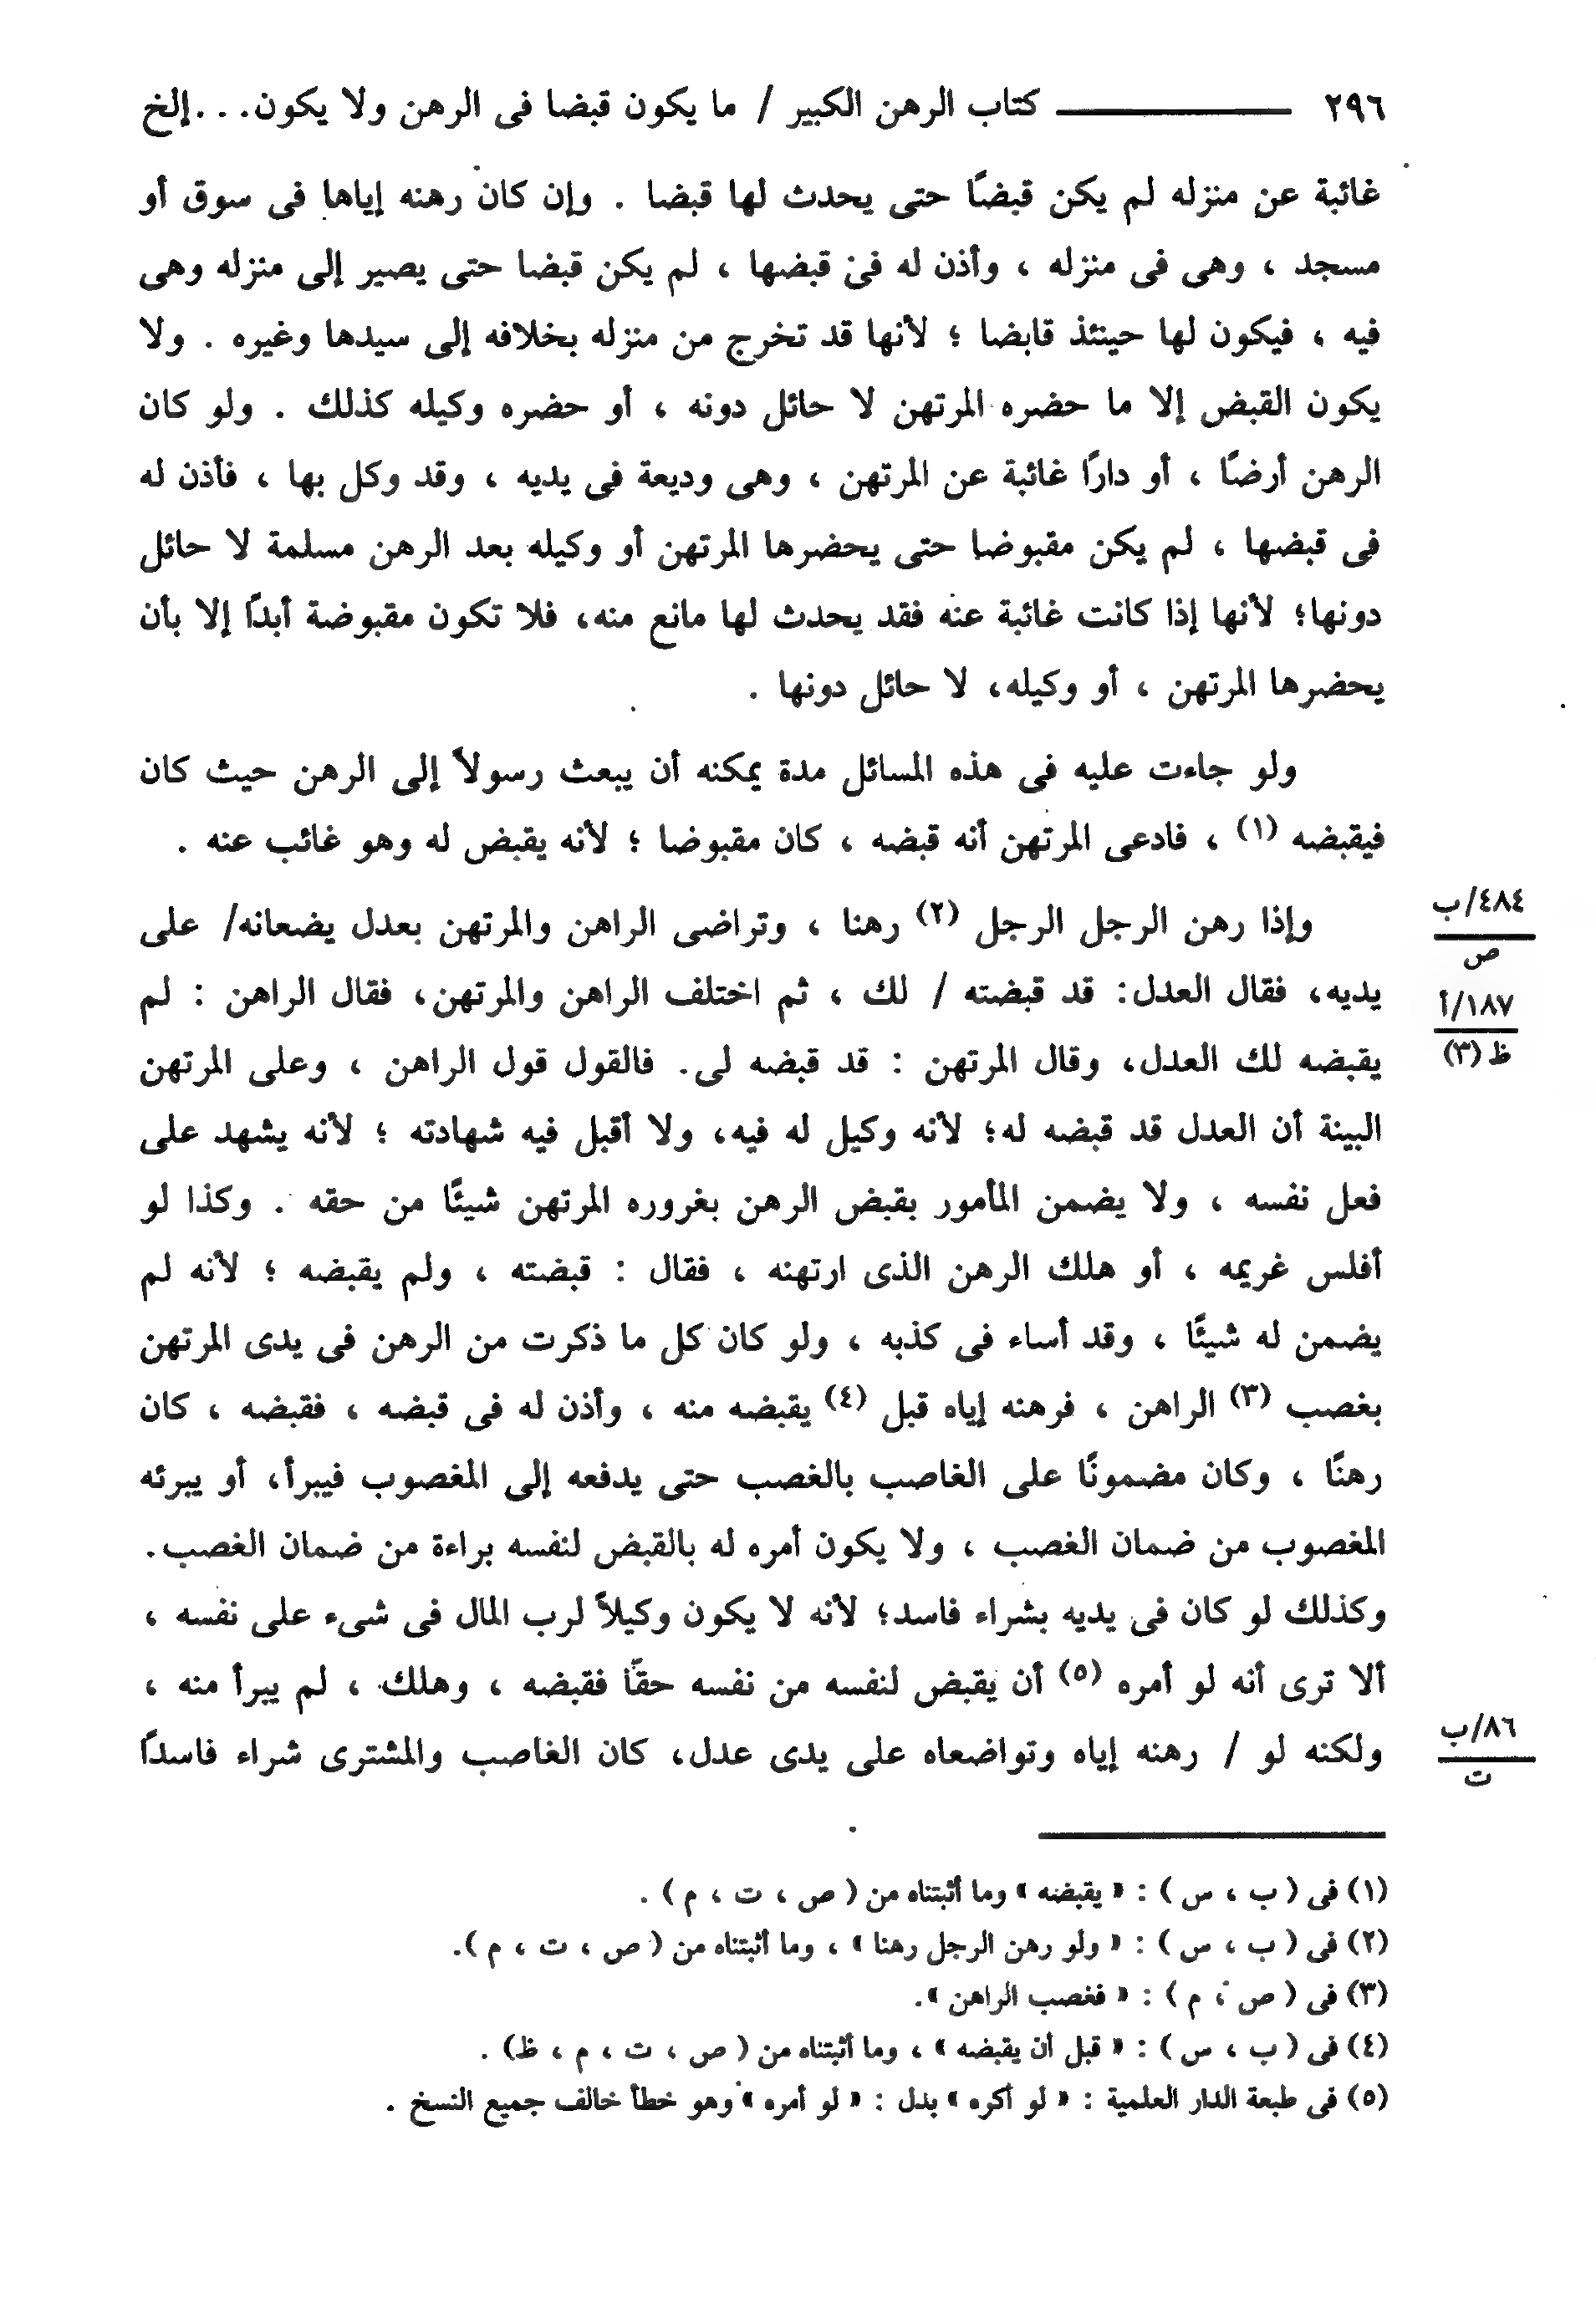 ٢٩٦ ــــــــــ كتاب الرهن الكبير / ما يكون قبضا فى الرهن ولا يكون. . .إلخ
غائبة عن منزله لم يكن قبضًا حتى يحدث لها قبضا . وإن كان رهنه إياها فى سوق أو
مسجد ، وهى فى منزله ، وأذن له فى قبضها ، لم يكن قبضا حتى يصير إلى منزله وهى
فيه ، فيكون لها حينئذ قابضا ؛ لأنها قد تخرج من منزله بخلافه إلى سيدها وغيره . ولا
يكون القبض إلا ما حضره المرتهن لا حائل دونه ، أو حضره وكيله كذلك . ولو كان
الرهن أرضًا ، أو دارًا غائبة عن المرتهن ، وهى وديعة فى يديه ، وقد وكل بها ، فأذن له
فى قبضها ، لم يكن مقبوضا حتى يحضرها المرتهن أو وكيله بعد الرهن مسلمة لا حائل
دونها؛ لأنها إذا كانت غائبة عنه فقد يحدث لها مانع منه، فلا تكون مقبوضة أبدًا إلا بأن
يحضرها المرتهن ، أو وكيله، لا حائل دونها .
ولو جاءت عليه فى هذه المسائل مدة يمكنه أن يبعث رسولاً إلى الرهن حيث كان
فيقبضه (١) ، فادعى المرتهن أنه قبضه ، كان مقبوضا ؛ لأنه يقبض له وهو غائب عنه .
٤٨٤/ب
ص
وإذا رهن الرجل الرجل (٢) رهنا ، وتراضى الراهن والمرتهن بعدل يضعانه/ على
يديه، فقال العدل: قد قبضته / لك ، ثم اختلف الراهن والمرتهن، فقال الراهن : لم
١٨٧/أ
ظ (٣)
يقبضه لك العدل، وقال المرتهن : قد قبضه لى. فالقول قول الراهن ، وعلى المرتهن
البينة أن العدل قد قبضه له؛ لأنه وكيل له فيه، ولا أقبل فيه شهادته ؛ لأنه يشهد على
فعل نفسه ، ولا يضمن المأمور بقبض الرهن بغروره المرتهن شيئًا من حقه . وكذا لو
أفلس غريمه ، أو هلك الرهن الذى ارتهنه ، فقال : قبضته ، ولم يقبضه ؛ لأنه لم
يضمن له شيئًا ، وقد أساء فى كذبه ، ولو كان كل ما ذكرت من الرهن فى يدى المرتهن
بغصب (٣) الراهن ، فرهنه إياه قبل (٤) يقبضه منه ، وأذن له فى قبضه ، فقبضه ، كان
رهنًا ، وكان مضمونًا على الغاصب بالغصب حتى يدفعه إلى المغصوب فيبرأ، أو يبرئه
المغصوب من ضمان الغصب ، ولا يكون أمره له بالقبض لنفسه براءة من ضمان الغصب.
وكذلك لو كان فى يديه بشراء فاسد؛ لأنه لا يكون وكيلاً لرب المال فى شىء على نفسه ،
ألا ترى أنه لو أمره (٥) أن يقبض لنفسه من نفسه حقًا فقبضه ، وهلك ، لم يبرأ منه ،
٨٦/ب
ت
ولكنه لو / رهنه إياه وتواضعاه على يدى عدل، كان الغاصب والمشترى شراء فاسدًا
(١) فى ( ب ، س ) : « يقبضه » وما أثبتناه من ( ص ، ت ، م ) .
(٢) فى ( ب ، س ) : « ولو رهن الرجل رهنا » ، وما أثبتناه من ( ص ، ت ، م ).
(٣) فى ( ص ، م ) : « فغصب الراهن ».
(٤) فى ( ب ، س ) : « قبل أن يقبضه » ، وما أثبتناه من ( ص ، ت ، م ، ظ) .
(٥) فى طبعة الدار العلمية : « لو أكره » بدل : « لو أمره » وهو خطأ خالف جميع النسخ .